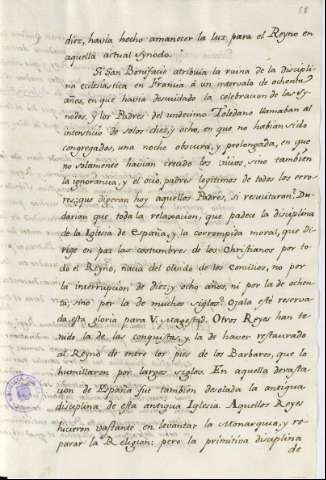 58
diez, havia hecho amanecer la luz para el Reyno en
aquella actual synodo.
Si San Bonifacio atribuia la ruina de la discipli
na eclesiastica en Francia á un intervalo de ochenta
años, en que havia descuidado la celebracion de las sy-
nodos, y los Padres del undecimo Toledano llamaban al
intersticio de solos diez, y ocho, en que no habian sido
congregados, una noche obscura, y prolongada, en que
no solamente havian crecido los vicios, sino tambien
la ignorancia, y el ocio, padres legitimos de todos los erro-
res; que dixeran hoy aquellos Padres, si resucitaran? Du-
darian que toda la relaxacion, que padece la disciplina
de la Iglesia de España, y la corrompida moral, que di-
rige en paz las costumbres de los Christianos por to-
do el Reyno, nacia del olvido de los concilios, no por
la interrupcion de diez, y ocho años, ni por la de ochen-
ta, sino por la de muchos siglos? Ojala esté reserva-
da esta gloria para V. Magestad. Otros Reyes han te-
nido la de las conquistas, y la de haver restaurado
al Reyno de entre los pies de los Barbaros, que lo
humillaron por largos siglos. En aquella devasta-
cion de España fue tambien desolada la antigua
disciplina de esta antigua Iglesia. Aquellos Reyes
hicieron bastante en levantar la Monarquia, y re-
parar la Religion; pero la primitiva disciplina
de